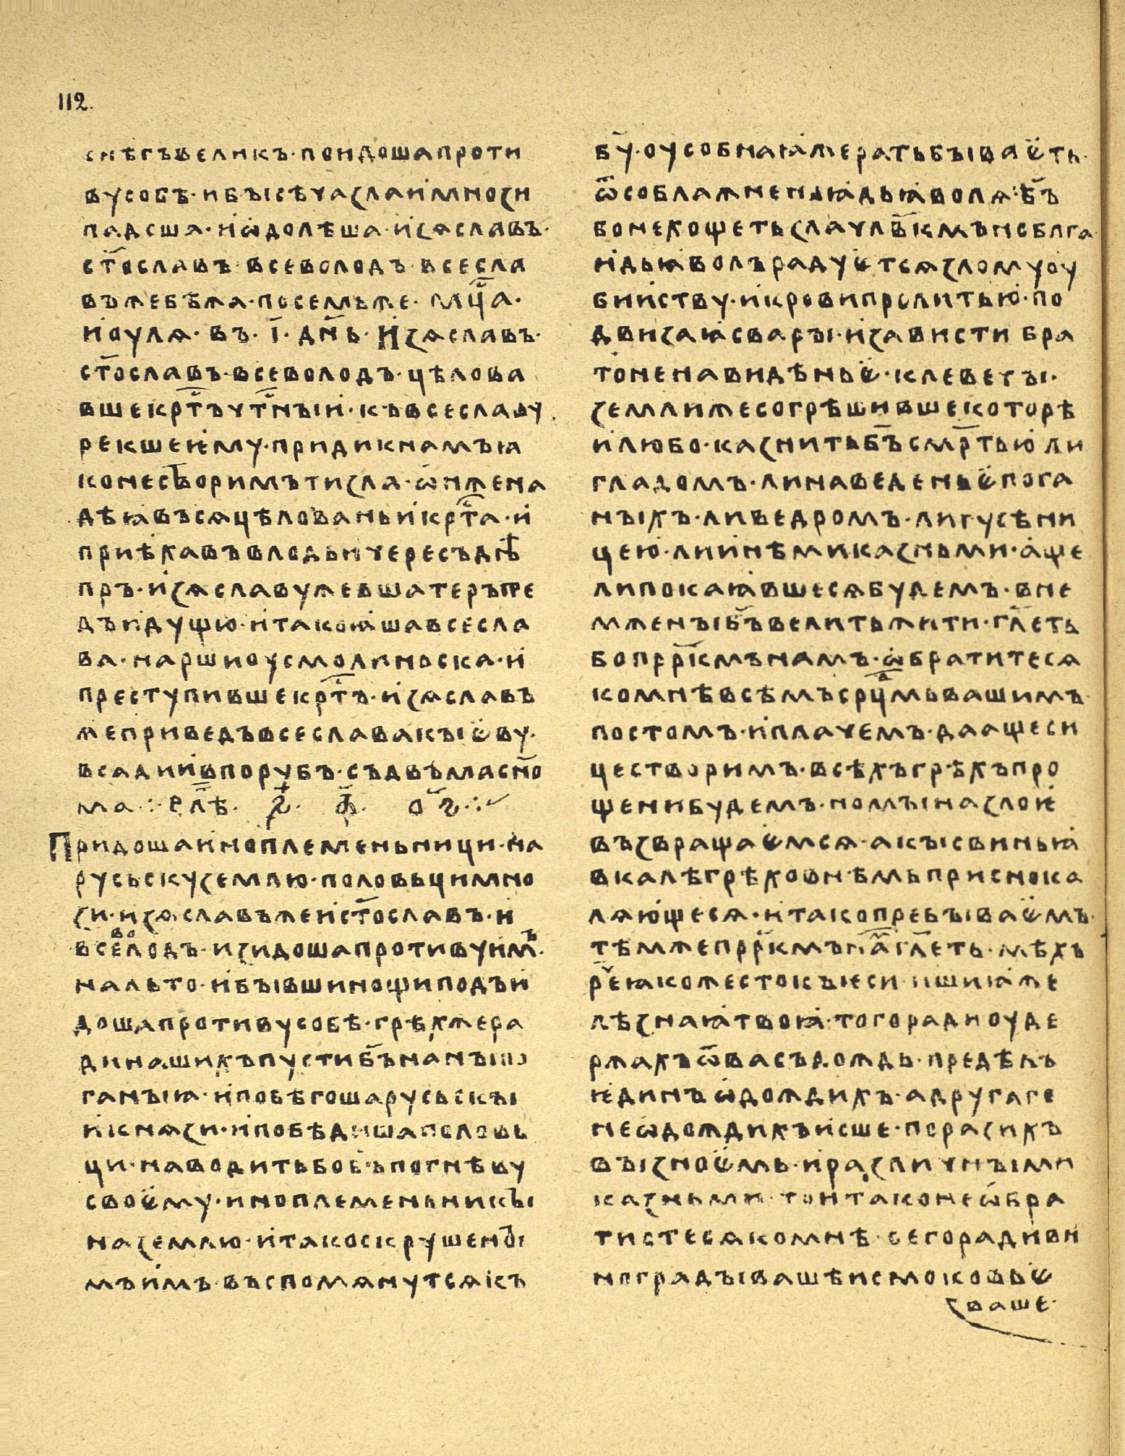 112.
снѣгъ великъ · поидоша проти
ву собѣ · и бъı сѣча зла и мнози
падсша · и ѡдолѣша · изѧславъ ·
ст҃ославъ · всеволодъ · всесла
въ же бѣжа · по семь же · мц҃а ·
иоулѧ · въ · і҃ · дн҃ь · Изѧславъ ·
ст҃ославъ · всеволодъ · цѣлова
вше крт҃ъ чт҃нъıи · къ всеславу
рекше ѥму · приди к намъ ꙗ
ко не створимъ ти зла · ѡн же на
дѣꙗвъсѧ цѣлованьи крт҃а · и
приѣхавъ в лодьи чересъ днѣ
пръ · изѧславу же в шатеръ пре
дъидущю · и тако ꙗша всесла
ва · на рши оу смолиньска · и
преступивше крт҃ъ · изѧславъ
же приведъ всеслава къıѥву ·
всади и в порубъ · съ двѣма сн҃о
ма ⁘ В лѣ҃ · ҂ѕ҃ · ф҃ · ог҃ ⁘
Придоша иноплеменьници · на
русьску землю · половьци мно
зи · изѧславъ же и ст҃ославъ · и
всеволодъ · изидоша противу имъ ·
на льто · и бъıвши нощи подъи
доша противу собѣ · грѣх же ра
ди нашихъ пусти бъ҃ на нъı по
ганъıꙗ · и побѣгоша русьскъı
и кнѧзи · и побѣдиша половь
ци · наводить бо бъ҃ по гнѣву
своѥму · иноплеменьникъı
на землю · и тако скрушенъı
мъ имъ · въспомѧнутсѧ къ
бу҃ · оусобнаꙗ же рать бъıваѥть ·
ѿ соблажненьꙗ дьꙗволѧ · бъ҃
бо не хощеть зла члв҃кмъ но блга
и дьꙗволъ радуѥтсѧ злому оу
биийству · и крови пролитью · по
двизаꙗ сваръı · и зависти бра
тоненавидѣньѥ · клеветъı ·
земли же согрѣшивше которѣ
и любо · казнить бъ҃ смр҃тью ли
гладомъ · ли наведеньѥ пога
нъıхъ · ли ведромъ · ли гусѣни
цею · ли инѣми казньми · аще
ли покаꙗвшесѧ будемъ · в не
мже нъı бъ҃ велить жити · гл҃еть
бо прр҃кмъ намъ · ѡбратитесѧ
ко мнѣ всѣмъ срдц҃мь вашимъ
постомъ · и плачемъ · да аще си
це створимъ · всѣхъ грѣхъ про
щени будемъ · но мъı на злоѥ
възвращаѥмсѧ · акъı свиньꙗ
в калѣ грѣховнѣмь присно ка
лѧющесѧ · и тако пребъıваѥмъ ·
тѣмже прр҃кмъ нама гл҃еть · мѣхъ
ре҃ ꙗко жестокъ ѥси · и шиꙗ же
лѣзнаꙗ твоꙗ · того ради оуде
ржахъ ѿ васъ дождь · предѣлъ
ѥдинъ ѡдождихъ · а другаго
не ѡдождихъ исше · поразихъ
въı зноѥмь · и различнъıми
казньми · то и тако не ѡбра
тистесѧ ко мнѣ · сего ради ви
нградъı вашѣ и смоковьѥ
ваше ·